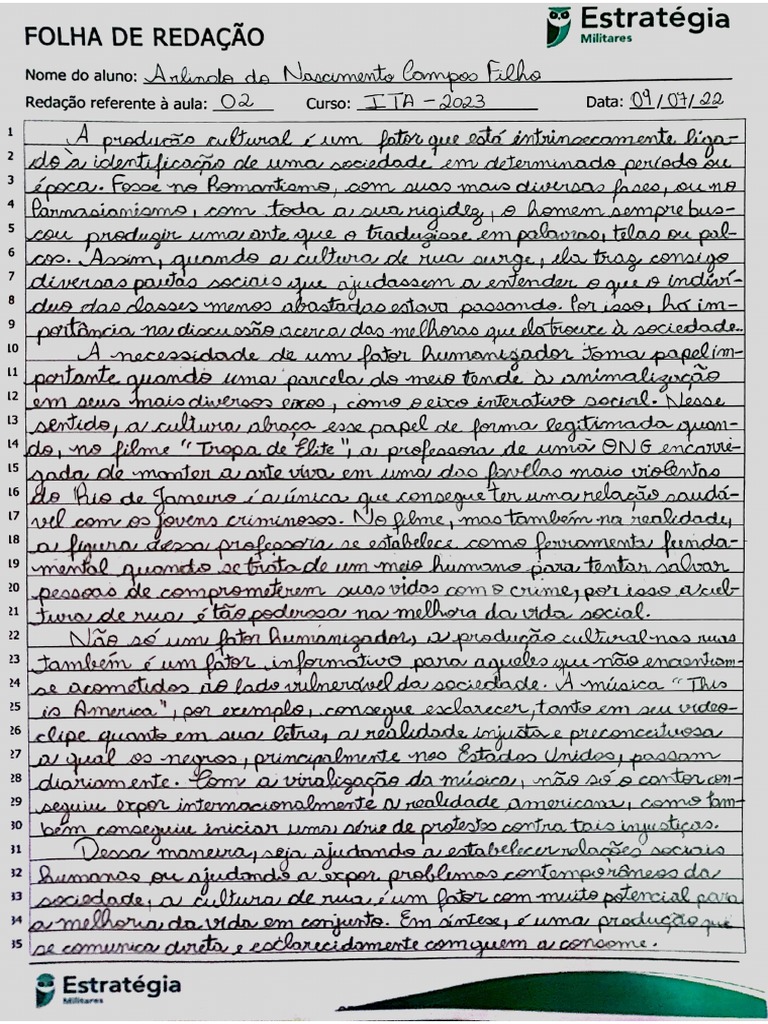 Estratégia
Militares
FOLHA DE REDAÇÃO
Nome do aluno: Arlindo do Nascimento Campos Filho
Redação referente à aula: 02 Curso: ITA - 2023 Data: 09/07/22
1 A produção cultural é um fator que está intrinsecamente liga-
2 do à identificação de uma sociedade em determinado período ou
3 época. Fosse no Romantismo, com suas mais diversas fases, ou no
4 Parnasianismo, com toda a sua rigidez, o homem sempre bus-
5 cou produzir uma arte que o traduzisse em palavras, telas ou pal-
6 cos. Assim, quando a cultura de rua surge, ela traz consigo
7 diversas pautas sociais que ajudassem a entender o que o indiví-
8 duo das classes menos abastadas estava passando. Por isso, há im-
9 portância na discussão acerca das melhoras que ela trouxe à sociedade.
10 A necessidade de um fator humanizador toma papel im-
11 portante quando uma parcela do meio tende à animalização
12 em seus mais diversos eixos, como o eixo interativo social. Nesse
13 sentido, a cultura abraça esse papel de forma legitimada quan-
14 do, no filme "Tropa de Elite", a professora de uma ONG encarre-
15 gada de manter a arte viva em uma das favelas mais violentas
16 do Rio de Janeiro é a única que consegue ter uma relação saudá-
17 vel com os jovens criminosos. No filme, mas também na realidade,
18 a figura dessa professora se estabelece como ferramenta funda-
19 mental quando se trata de um meio humano para tentar salvar
20 pessoas de comprometerem suas vidas com o crime, por isso a cul-
21 tura de rua é tão poderosa na melhora da vida social.
22 Não só um fator humanizador, a produção cultural nas ruas
23 também é um fator informativo para aqueles que não encontram-
24 se acometidos ao lado vulnerável da sociedade. A música "This
25 is America", por exemplo, consegue esclarecer, tanto em seu video-
26 clipe quanto em sua letra, a realidade injusta e preconceituosa
27 a qual os negros, principalmente nos Estados Unidos, passam
28 diariamente. Com a viralização da música, não só o cantor con-
29 seguiu expor internacionalmente a realidade americana, como tam-
30 bém conseguiu iniciar uma série de protestos contra tais injustiças.
31 Dessa maneira, seja ajudando a estabelecer relações sociais
32 humanas ou ajudando a expor problemas contemporâneos da
33 sociedade, a cultura de rua é um fator com muito potencial para
34 a melhora da vida em conjunto. Em síntese, é uma produção que
35 se comunica direta e esclarecidamente com quem a consome.
Estratégia
Militares